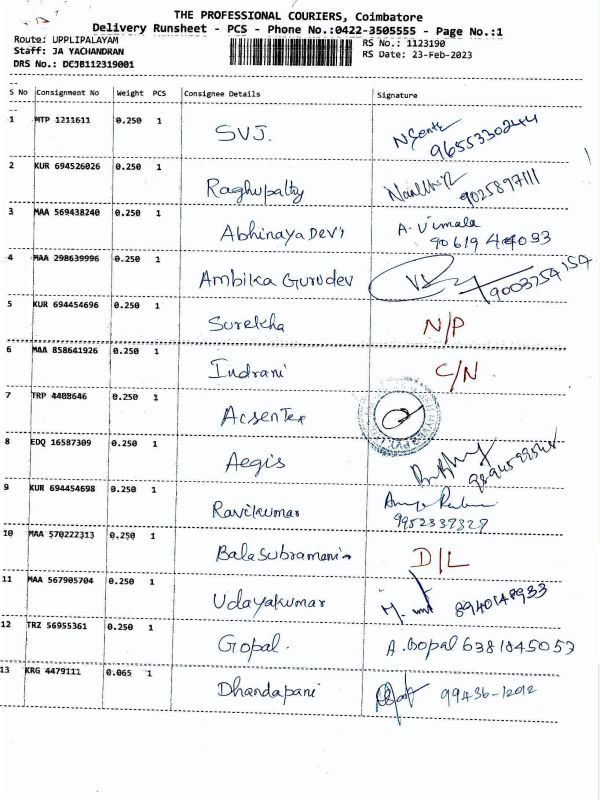 THE PROFESSIONAL COURIERS, Coimbatore
Delivery Runsheet - PCS - Phone No.:0422-3505555 - Page No.:1
Route: UPPLIPALAYAM RS No.: 1123190
Staff: JA YACHANDRAN RS Date: 23-Feb-2023
DRS No.: DCJB112319001
S No Consignment No Weight PCS Consignee Details Signature
1 MTP 1211611 0.250 1 SVJ. 9655330244
2 KUR 694526026 0.250 1 Raghupathy 9025897111
3 MAA 569438240 0.250 1 Abhinaya Devi A. Vimala
4 MAA 298639996 0.250 1 Ambika Gurudev 9003254154
5 KUR 694454696 0.250 1 Surekha N/P
6 MAA 858641926 0.250 1 Indrani C/N
7 TRP 4408646 0.250 1 Acsen Tex
8 EDQ 16587309 0.250 1 Aegis
9 KUR 694454698 0.250 1 Ravikumar
9952337327
10 MAA 570222313 0.250 1 Balasubramania D/L
11 MAA 567905704 0.250 1 Udayakumar 8940148933
12 TRZ 56955361 0.250 1 Gopal. A. Gopal 6381845057
13 KRG 4479111 0.065 1 Dhandapani 99436-12012